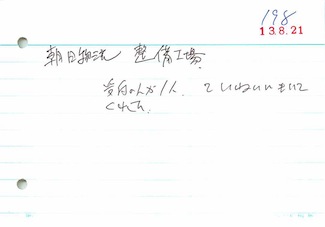 198
13.8.21
朝日物流 整備工場
受付の人が1人、ていねいに
くれた。